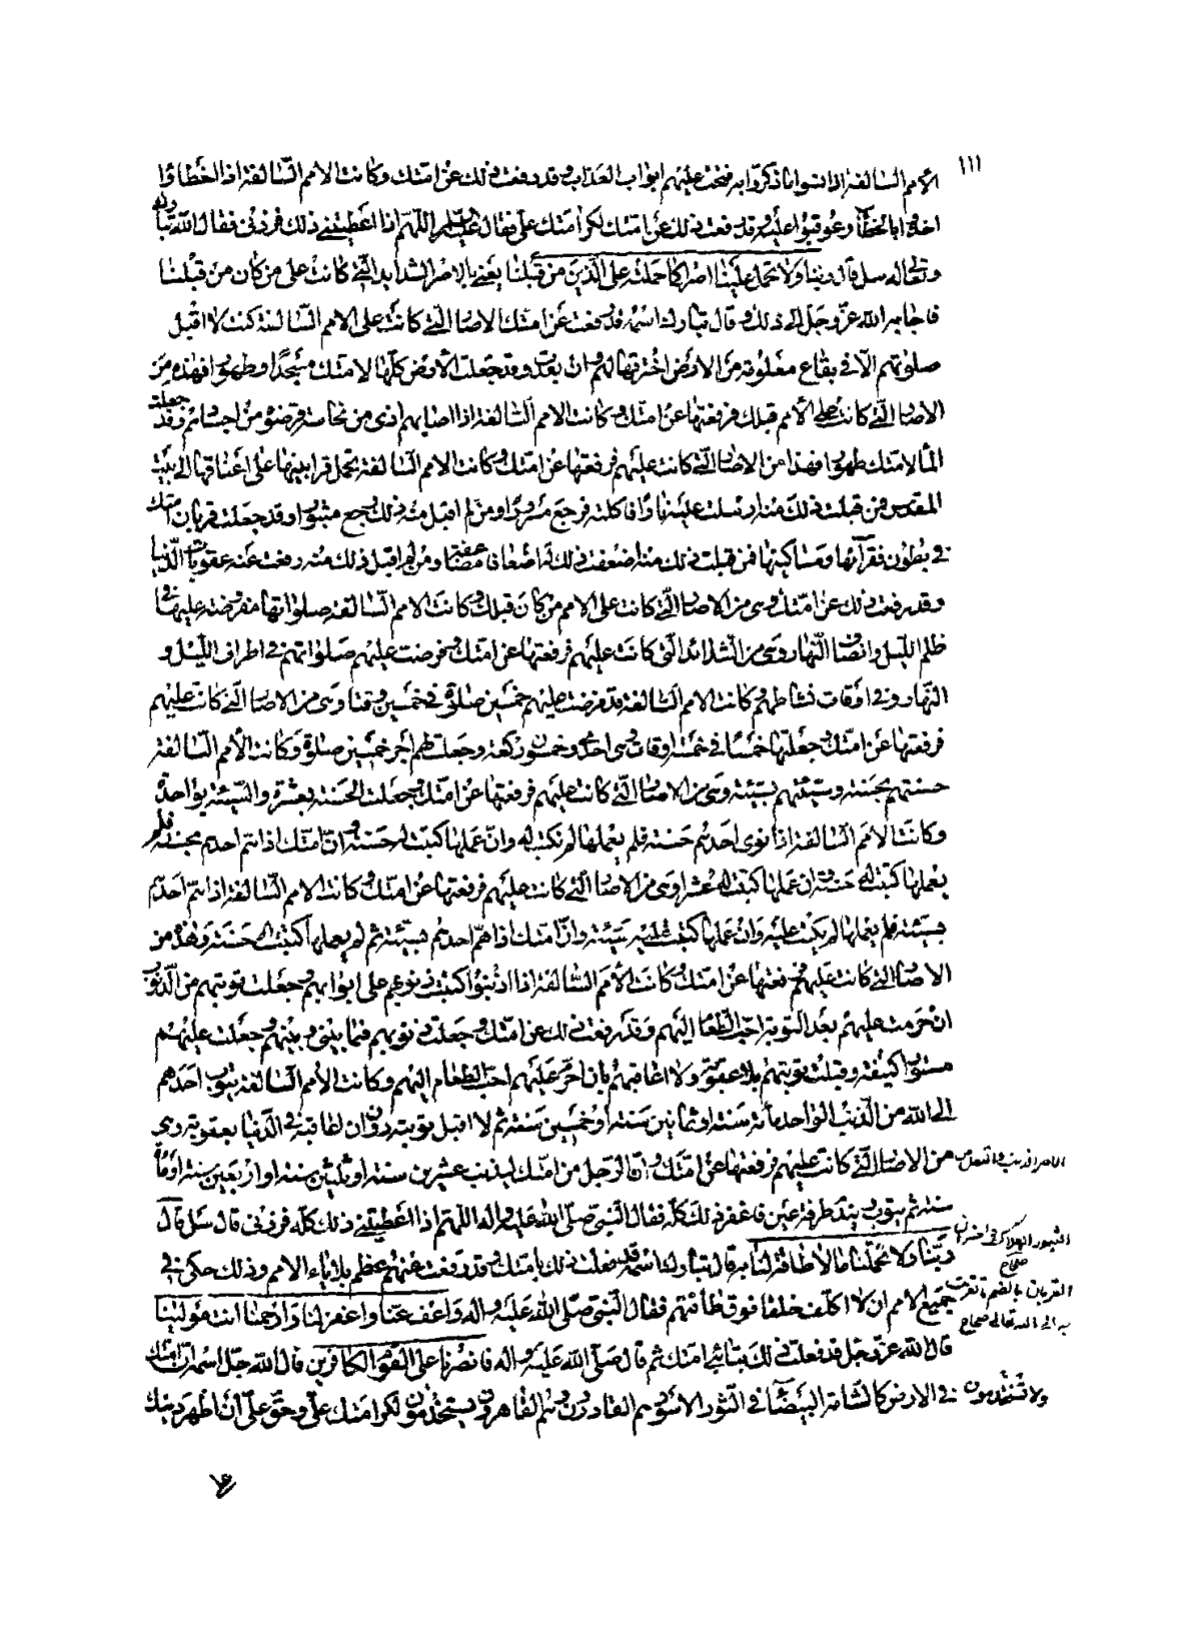 ١١١
الأمم السالفة اذا نسوا ما ذكروا به فتحت عليهم ابواب العذاب وقد رفعت ذلك عن امتك وكانت الامم السالفة اذا اخطاؤا
اخذوا بالخطأ وعوقبوا عليه وقد رفعت ذلك عن امتك لكرامتك علي فقال اللهم اذا اعطيتني ذلك فزدني فقال الله تبارك
وتعالى له سل قال ربنا ولا تحمل علينا اصرا كما حملته على الذين من قبلنا يعني بالاصر الشدايد التي كانت على من كان من قبلنا
فاجابه الله عز وجل الى ذلك وقال تبارك اسمه قد رفعت عن امتك الاصار التي كانت على الامم السالفة كنت لا اقبل
صلوتهم الا في بقاع معلومة من الارض اخترتها لهم وان بعدت وقد جعلت الأرض كلها لامتك مسجدا وطهورا فهذه من
الاصار التي كانت على الأمم قبلك فرفعتها عن امتك وكانت الامم السالفة اذا اصابهم اذى من نجاسة قرضوه من اجسادهم وقد جعلت
الماء لامتك طهورا فهذا من الاصار التي كانت عليهم فرفعتها عن امتك وكانت الامم السالفة تحمل قرابينها على اعناقها الى بيت
المقدس فمن قبلت ذلك منه ارسلت عليه نارا فاكلته فرجع مسرورا ومن لم اقبل منه ذلك رجع مثبورا وقد جعلت قربان امتك
في بطون فقرآئها ومساكينها فمن قبلت ذلك منه اضعفت ذلك له اضعافا مضاعفة ومن لم اقبل ذلك منه رفعت عنه عقوبات الدنيا
وقد رفعت ذلك عن امتك وهى من الاصار التي كانت على الامم من كان قبلك وكانت الامم السالفة صلواتها مفروضة عليها في
ظلم الليل وانصاف النهار وهى من الشدائد التي كانت عليهم فرفعتها عن امتك وفرضت عليهم صلواتهم في اطراف الليل و
النهار وفي اوقات نشاطهم وكانت الامم السالفة قد فرضت عليهم خمسين صلوة في خمسين وقتا وهى من الاصار التي كانت عليهم
فرفعتها عن امتك وجعلتها خمسا في خمسة اوقات وهى احدى وخمسون ركعة وجعلت لهم اجر خمسين صلوة وكانت الأمم السالفة
حسنتهم بحسنة وسيئتهم بسيئة وهى من الاصار التي كانت عليهم فرفعتها عن امتك وجعلت الحسنة بعشرة والسيئة بواحدة
وكانت الامم السالفة اذا نوى احدهم حسنة فلم يعملها لم تكتب له وان عملها كتبت له حسنة وان امتك اذا هم احدهم بحسنة فلم
يعملها كتبت له حسنة وان عملها كتبت له عشرا وهى من الاصار التي كانت عليهم فرفعتها عن امتك وكانت الامم السالفة اذا هم احدهم
بسيئة فلم يعملها لم تكتب عليه وان عملها كتبت عليه سيئة وان امتك اذا هم احدهم بسيئة ثم لم يعملها كتبت له حسنة وهذه من
الاصار التي كانت عليهم فرفعتها عن امتك وكانت الأمم السالفة اذا اذنبوا كتبت ذنوبهم على ابوابهم وجعلت توبتهم من الذنوب
ان حرمت عليهم بعد التوبة احب الطعام اليهم وقد رفعت ذلك عن امتك وجعلت ذنوبهم فيما بيني وبينهم وجعلت عليهم
ستورا كثيفة وقبلت توبتهم بلا عقوبة ولا اعاقبهم بان احرم عليهم احب الطعام اليهم وكانت الأمم السالفة يتوب احدهم
الى الله من الذنب الواحد مائة سنة او ثمانين سنة او خمسين سنة ثم لا اقبل توبته دون ان اعاقبه في الدنيا بعقوبة وهى
من الاصار التي كانت عليهم فرفعتها عن امتك وان الرجل من امتك ليذنب عشرين سنة او ثلثين سنة او اربعين سنة او مائة
سنة ثم يتوب ويندم طرفة عين فاغفر ذلك كله فقال النبي صلى الله عليه واله اللهم اذا اعطيتني ذلك كله فزدني قال سل قال
ربنا ولا تحملنا ما لا طاقة لنا به قال تبارك اسمه قد فعلت ذلك بامتك وقد رفعت عنهم عظم بلايا الامم وذلك حكمي في
جميع الامم ان لا اكلف خلقا فوق طاقتهم فقال النبي صلى الله عليه واله واعف عنا واغفر لنا وارحمنا انت مولينا
قال الله عز وجل قد فعلت ذلك بتائبي امتك ثم قال صلى الله عليه واله فانصرنا على القوم الكافرين قال الله جل اسمه ان امتك
في الارض كالشامة البيضاء في الثور الاسود هم القادرون وهم القاهرون يستخدمون لكرامتك علي وحق علي ان اظهر دينك
ولا يستخدمون
الاصر الذنب والثقل
الثبور الهلاك والخسران
صحاح
القربان بالضم ما تقربت
به الى الله تعالى صحاح